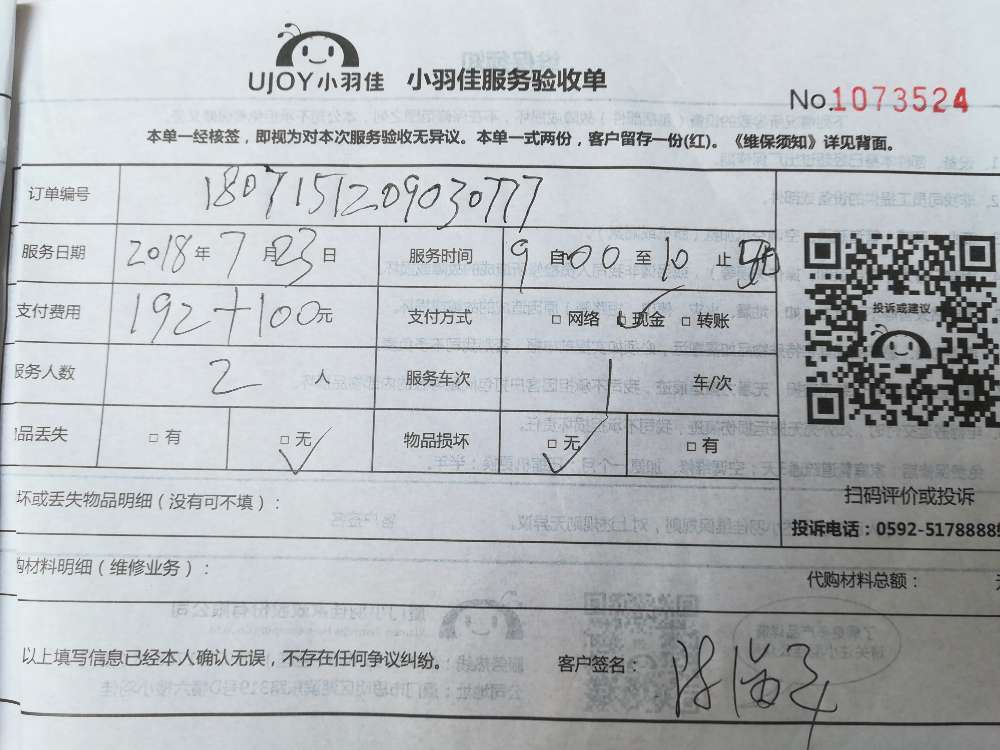 UJOY小羽佳 小羽佳服务验收单
No.1073524
本单一经核签，即视为对本次服务验收无异议。本单一式两份，客户留存一份(红)。《维保须知》详见背面。
订单编号 1807151209030777
服务日期 2018年7月23日 服务时间 9自:00至10止
支付费用 192+100元 支付方式 □网络 □现金 □转账
服务人数 2人 服务车次 1车/次
品丢失 □有 □无 物品损坏 □无 □有
投诉或建议
坏或丢失物品明细（没有可不填）：
扫码评价或投诉
投诉电话：0592-5178888
购材料明细（维修业务）： 代购材料总额：
以上填写信息已经本人确认无误，不存在任何争议纠纷。 客户签名：